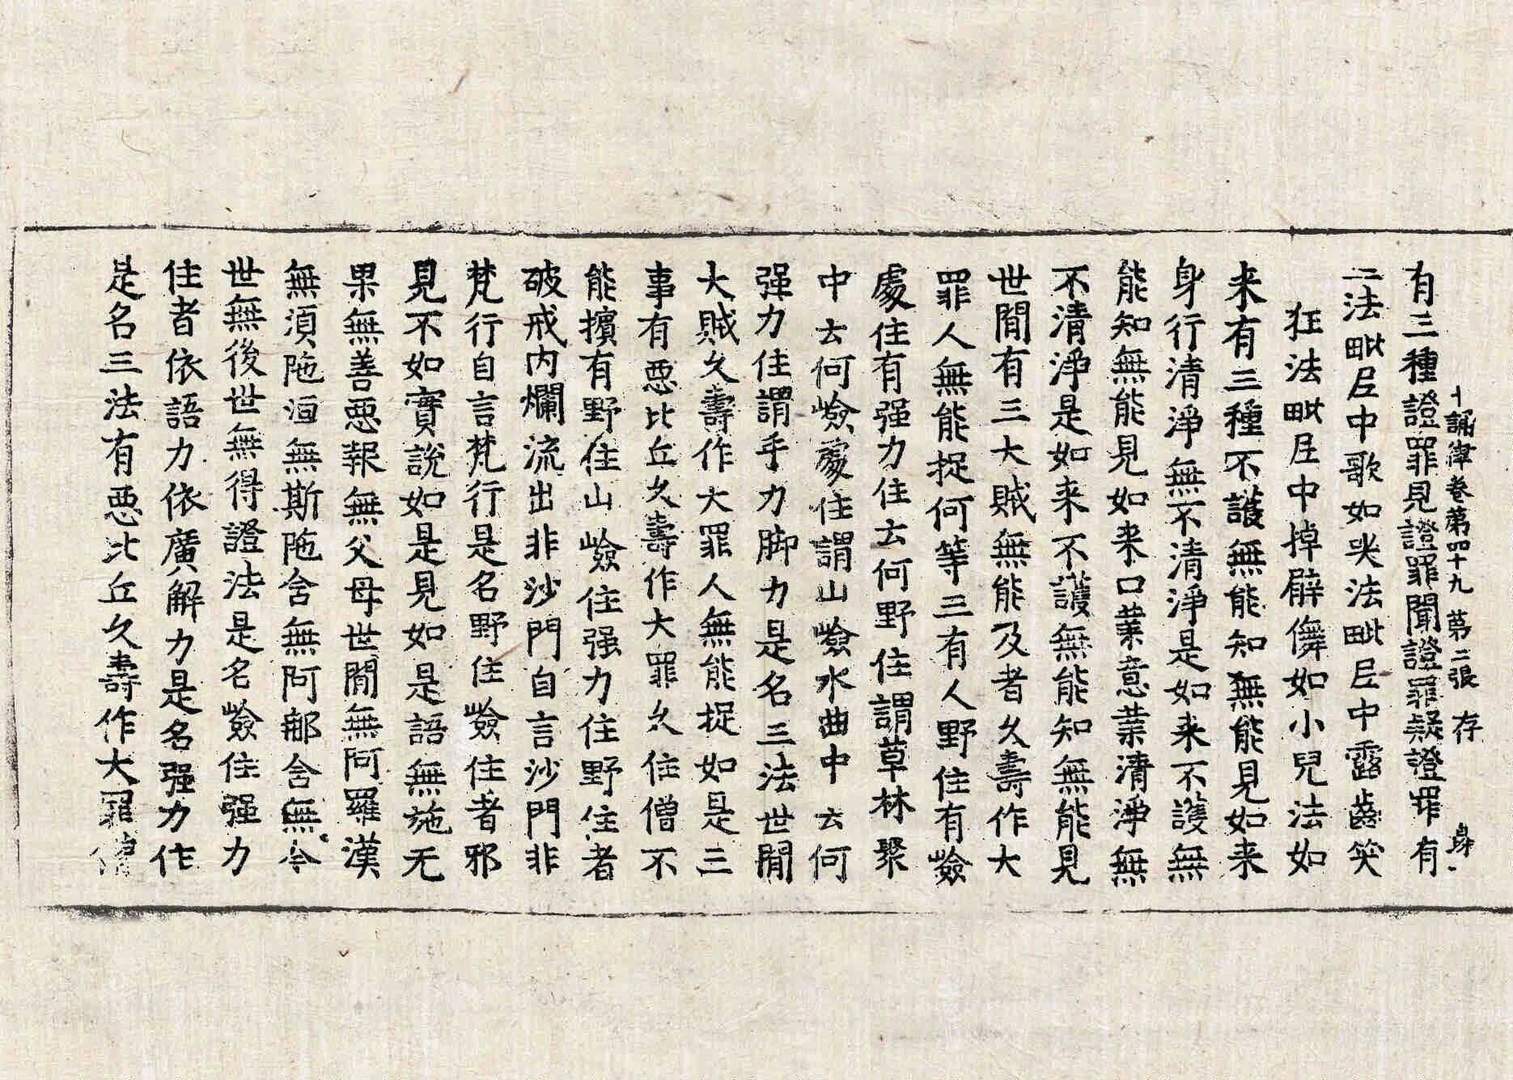 十誦律卷第四十九 第二張 存 身
有三種證罪見證罪聞證罪疑證罪有
三法毗尼中歌如哭法毗尼中露齒笑
狂法毗尼中掉臂儛如小兒法如
来有三種不護無能知無能見如来
身行清淨無不清淨是如来不護無
能知無能見如来口業意業清淨無
不清淨是如来不護無能知無能見
世閒有三大賊無能及者久壽作大
罪人無能捉何等三有人野住有嶮
處住有强力住云何野住謂草林聚
中云何嶮處住謂山嶮水曲中云何
强力住謂手力脚力是名三法世閒
大賊久壽作大罪人無能捉如是三
事有惡比丘久壽作大罪久住僧不
能擯有野住山嶮住强力住野住者
破戒内爛流出非沙門自言沙門非
梵行自言梵行是名野住嶮住者邪
見不如實說如是見如是語無施无
果無善惡報無父母世閒無阿羅漢
無須陁洹無斯陁含無阿那含無今
世無後世無得證法是名嶮住强力
住者依語力依廣解力是名强力住
是名三法有惡比丘久壽作大罪僧